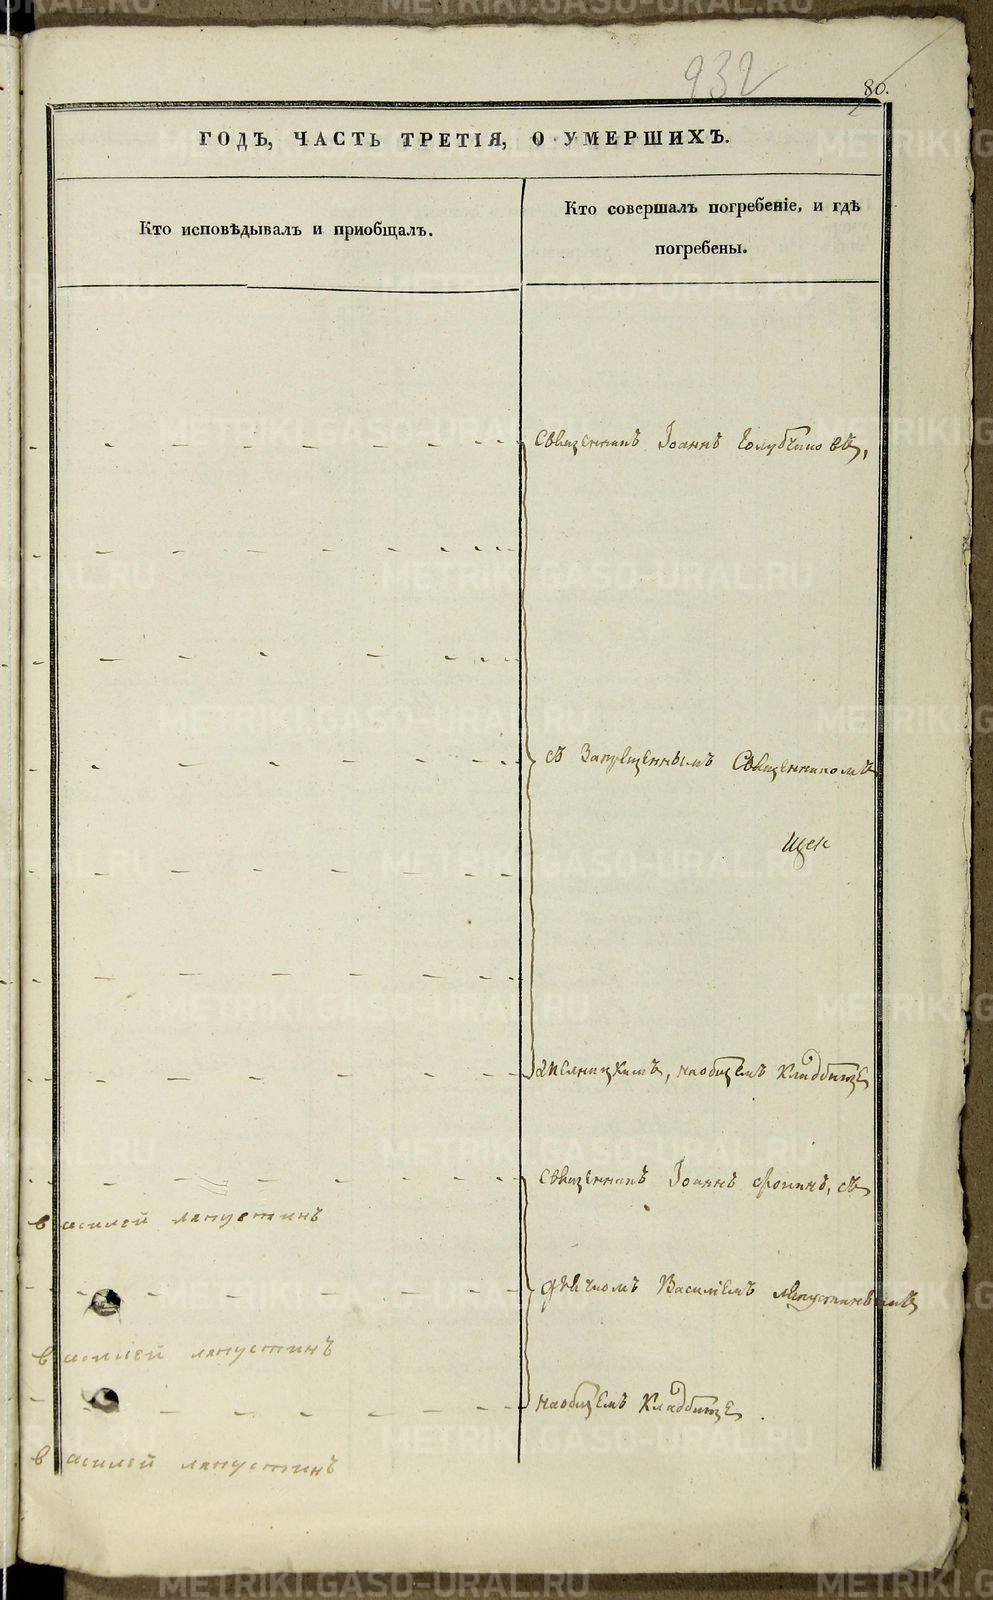 932
80.
ГОДЪ, ЧАСТЬ ТРЕТІЯ, О УМЕРШИХЪ.
Кто исповѣдывалъ и приобщалъ.
Кто совершалъ погребеніе, и гдѣ
погребены.
Священникъ Іоаннъ Голубчиковъ,
съ Запрещеннымъ Священникомъ
наобщемъ Кладбище
Священникъ Іоаннъ Фоминъ, съ
василей лапустинъ
дьячкомъ Василіемъ лапустинымъ
василей лапустинъ
наобщемъ Кладбище
василей лапустинъ
METRIKI.GASO-URAL.RU